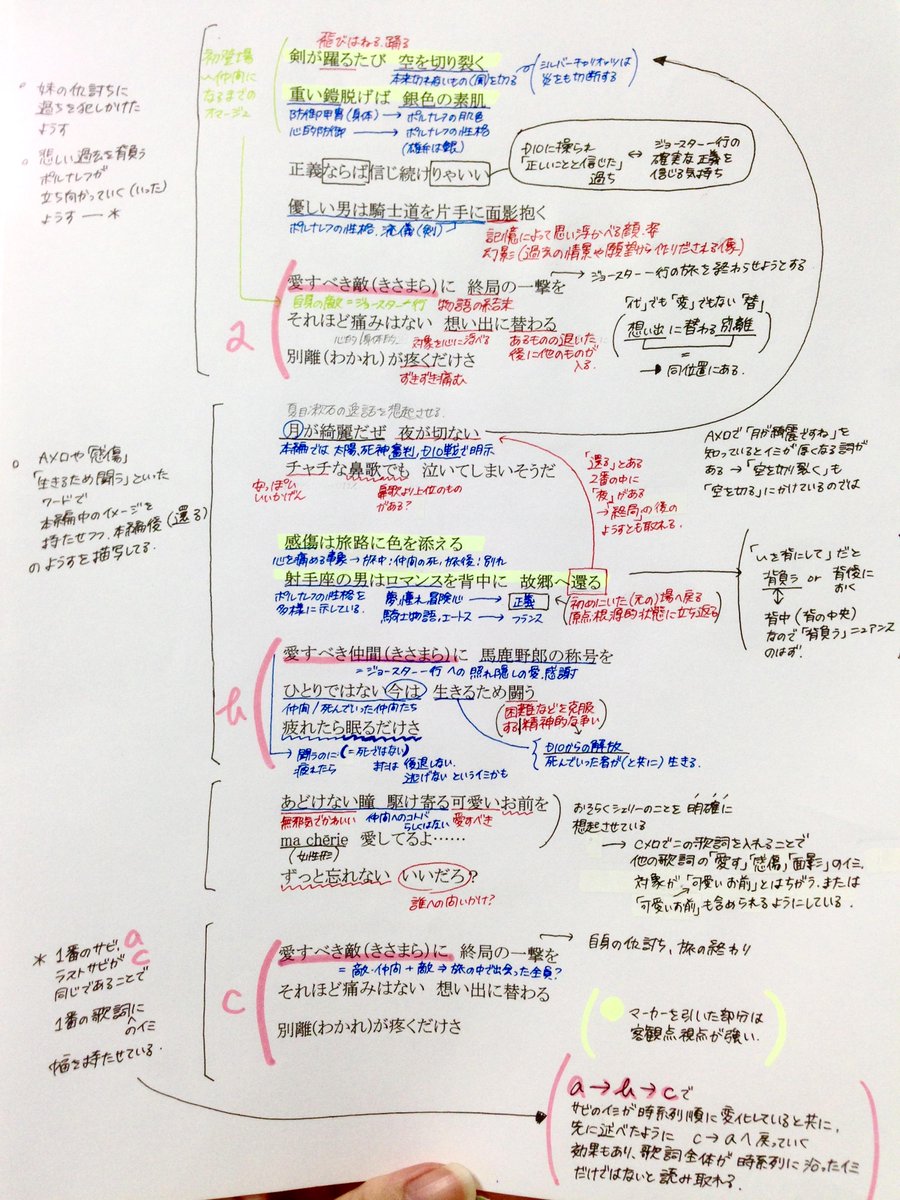 飛びはねる、踊る
剣が躍るたび 空を切り裂く
本来切れないもの(風)を切る
シルバーチャリオッツは
炎をも切断する
初登場
〜仲間に
なるまでの
オマージュ
重い鎧脱げば 銀色の素肌
防御甲冑(身体)→ポルナレフの肌色
心的防御→ポルナレフの性格
(雄弁は銀)
妹の仇討ちに
過ちを犯しかけた
ようす
悲しい過去を背負う
ポルナレフが
立ち向かっていく(いった)
ようす ― *
正義ならば信じ続けりゃいい
DIOに操られ
「正しいことと信じた」
過ち
↔ ジョースター一行の
確実な正義を
信じる気持ち
優しい男は騎士道を片手に面影抱く
ポルナレフの性格、流儀(剣)
記憶によって思い浮かべる顔・姿
幻影(過去の情景や願望から作りだされる像)
a
愛すべき敵(きさまら)に 終局の一撃を
→ ジョースター一行の旅を終わらせようとする
自身の敵=ジョースター一行 物語の結末
それほど痛みはない 想い出に替わる
心的/身体的 対象を心に浮べる
あるものの退いた
後に他のものが
入る
別離(わかれ)が疼くだけさ
ずきずき痛む
「代」でも「変」でもない「替」
想い出に替わる別離
=
→ 同位置にある。
夏目漱石の逸話を想起させる。
月が綺麗だぜ 夜が切ない
本編では太陽、死神、審判、DIO戦で明示
チャチな鼻歌でも 泣いてしまいそうだ
安っぽい
いいかげん
鼻歌より上位のもの
がある?
AメロやΒ感傷」
「生きるため闘う」といった
ワードで
本編中のイメージを
持たせつつ、本編後(還る)
のようすを描写してる。
「還る」とある
2番の中に
「夜」がある
→「終局」の後の
ようすとも取れる。
Aメロで「月が綺麗ですね」を
知っているとイミが深くなる詞が
ある→「空を切り裂く」も
「空を切る」にかけているのでは
感傷は旅路に色を添える
心を痛める事象→旅中:仲間の死、旅後:別れ
射手座の男はロマンスを背中に 故郷へ還る
ポルナレフの性格を
多様に示している。
夢、憧れ、冒険心→正義
騎士物語、エートス→フランス
初めにいた(元の)場へ戻る
原点・根源的状態に立ち返る
「いを背にして」だと
背負う or 背後に
おく
背中(背の中央)
なので「背負う」ニュアンス
のはず。
b
愛すべき仲間(きさまら)に 馬鹿野郎の称号を
=ジョースター一行への照れ隠しの愛、感謝
ひとりではない今は 生きるため闘う
仲間/死んでいった仲間たち
困難などを克服
する精神的な争い
疲れたら眠るだけさ
→ 闘うのに 疲れたら
(=死ではない)
または 後退しない
逃げない というイミかも
DIOからの解放
死んでいった者が(と共に)生きる。
あどけない瞳 駆け寄る可愛いお前を
無邪気でかわいい 仲間へのコトバ
らしくはない 愛すべき
ma chērie 愛してるよ……
(女性形)
ずっと忘れない いいだろ?
誰への問いかけ?
おそらくシェリーのことを明確に
想起させている
→ Cメロでこの歌詞を入れることで
他の歌詞の「愛す」「感傷」「面影」のイミ、
対象が「可愛いお前」とはちがう。または
「可愛いお前」も含められるようにしている。
* 1番のサビ、a
ラストサビがc
同じであることで
1番の歌詞に
へのイミ
幅を持たせている。
c
愛すべき敵(きさまら)に 終局の一撃を
→ 自身の仇討ち、旅の終わり
=敵・仲間+敵⇒旅の中で出会った全員?
それほど痛みはない 想い出に替わる
別離(わかれ)が疼くだけさ
マーカーを引いた部分は
客観点視点が強い.
a→b→cで
サビのイミが時系列順に変化していると共に、
先に述べたように c→aへ戻っていく
効果もあり、歌詞全体が時系列に沿ったイミ
だけではないと読み取れる。